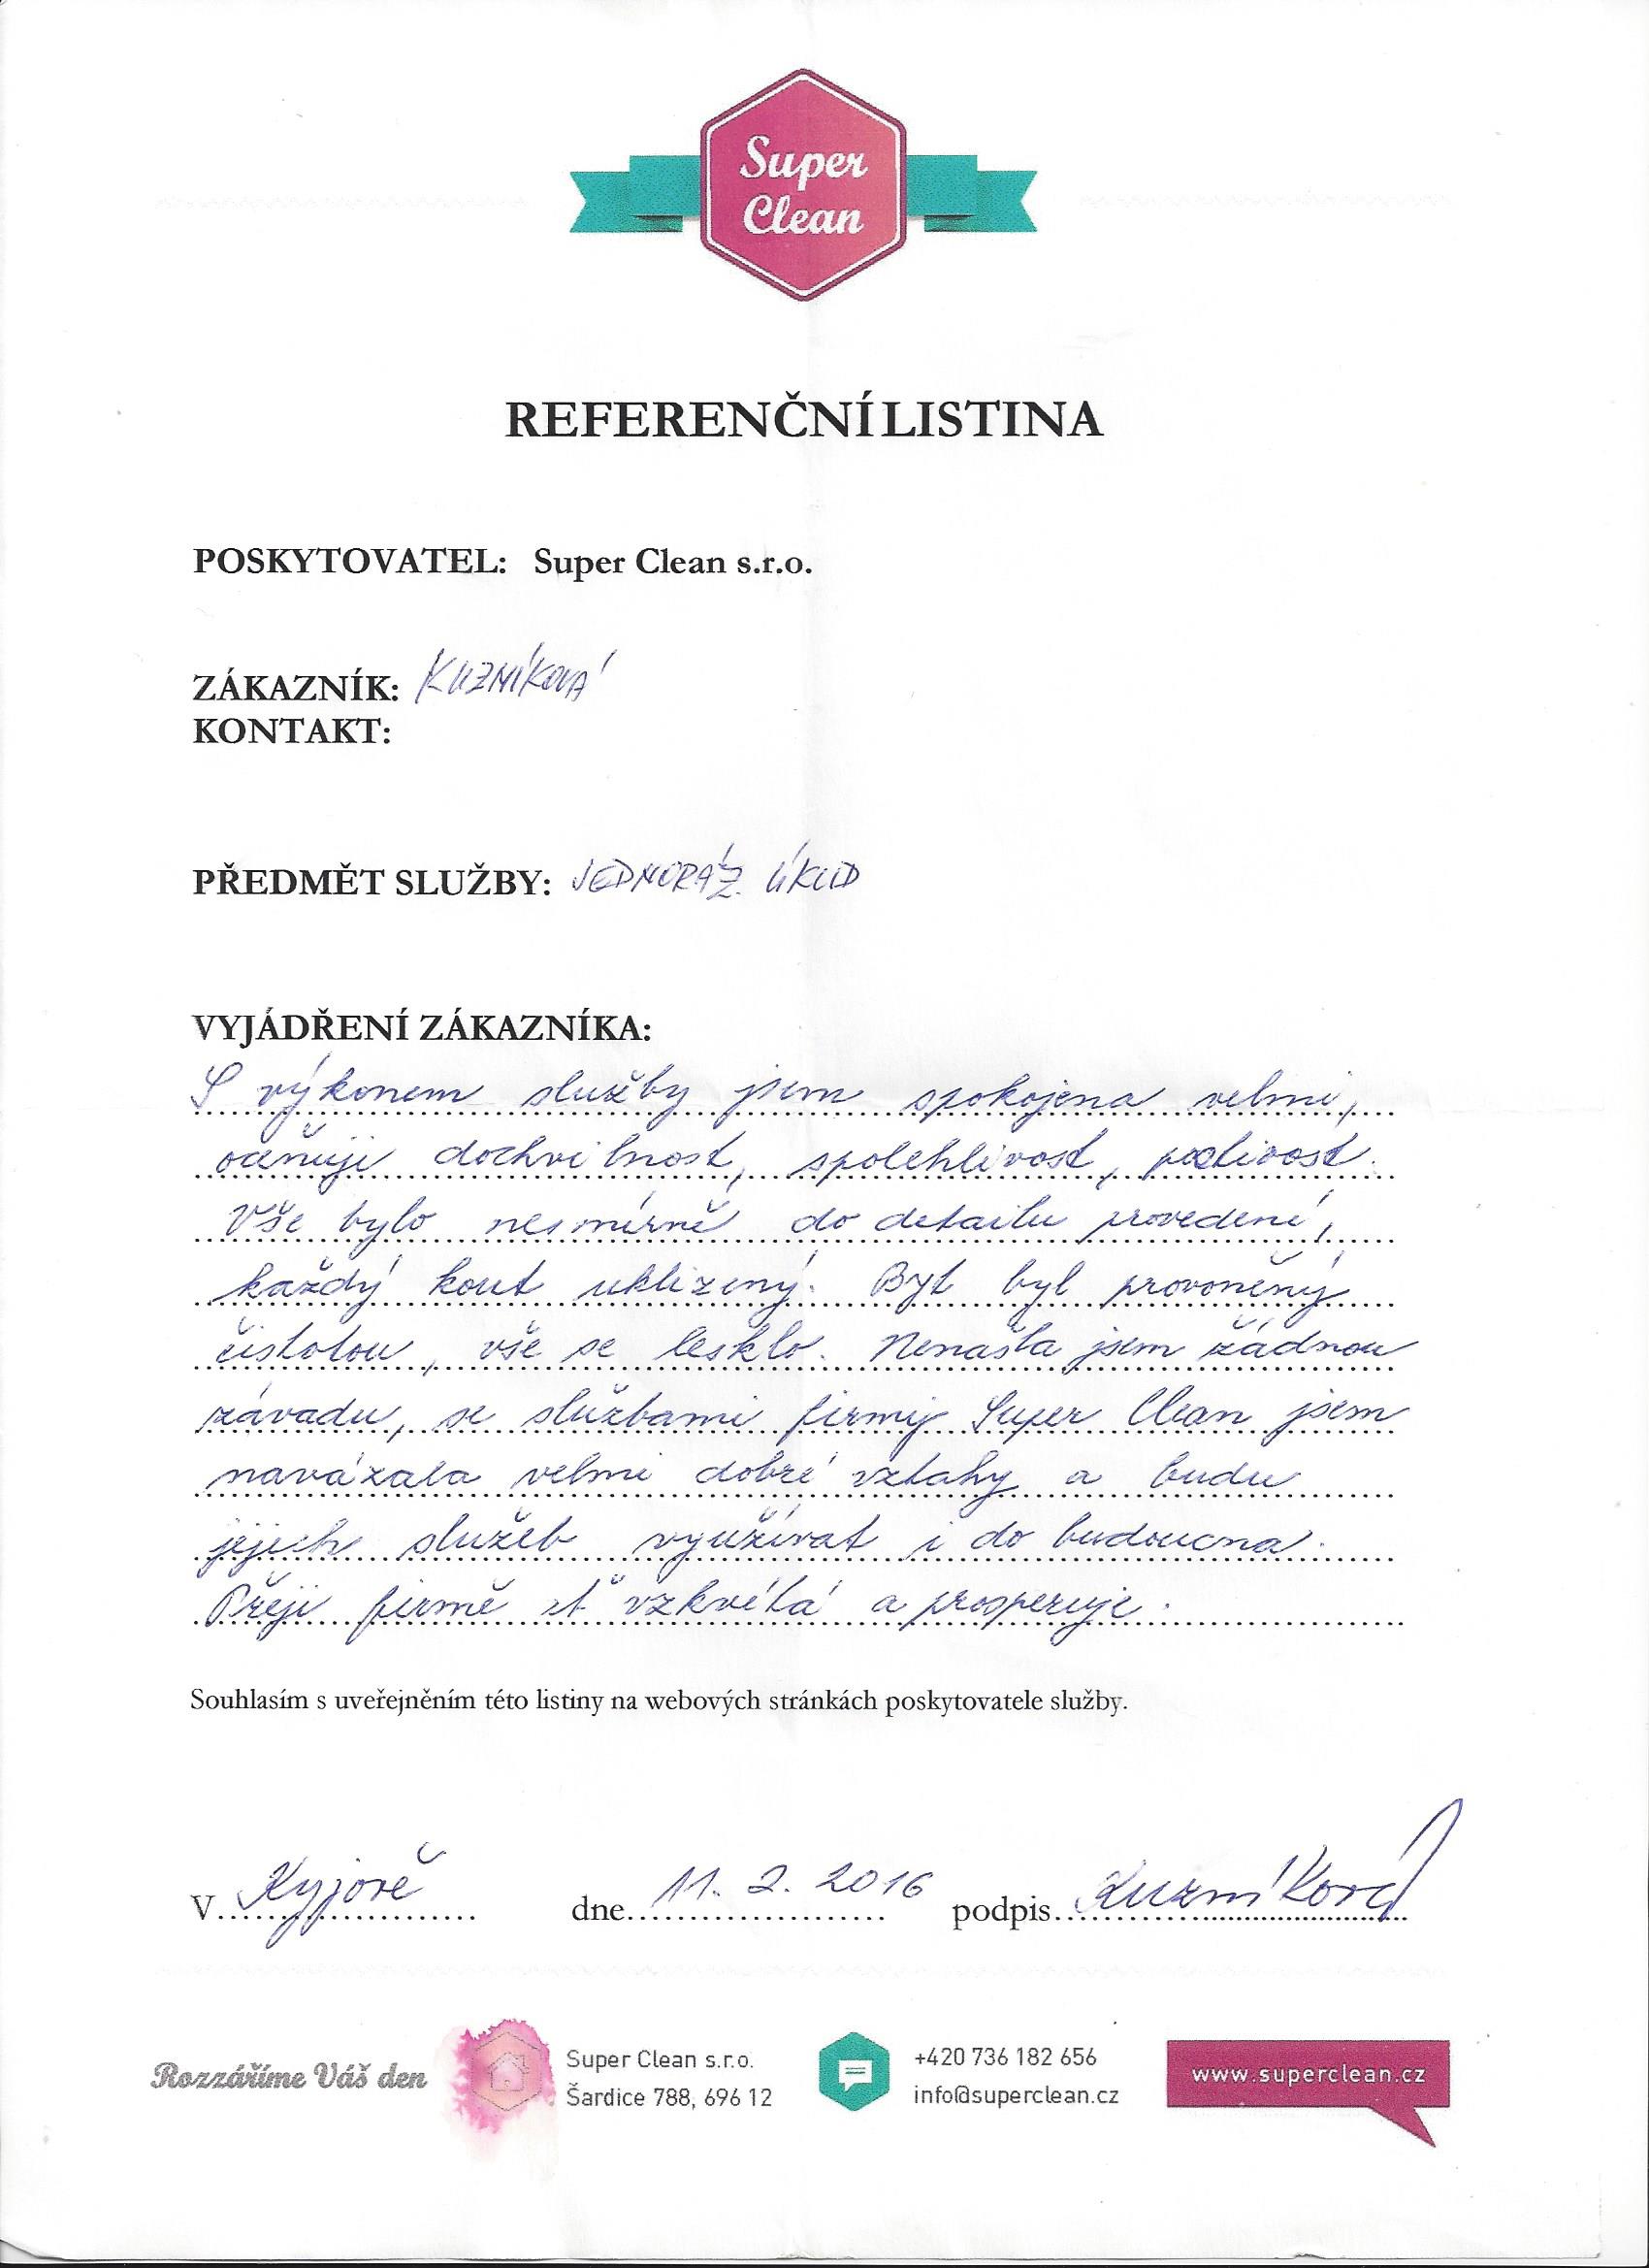 Super
Clean
REFERENČNÍ LISTINA
POSKYTOVATEL: Super Clean s.r.o.
ZÁKAZNÍK: KUZNÍKOVÁ
KONTAKT:
PŘEDMĚT SLUŽBY: JEDNORÁZ. ÚKLID
VYJÁDŘENÍ ZÁKAZNÍKA:
S výkonem služby jsem spokojena velmi,
oceňuji dochvilnost, spolehlivost, poctivost.
Vše bylo nesmírně do detailu provedení,
každý kout uklizený. Byt byl provoněný
čistotou, vše se lesklo. Nenašla jsem žádnou
závadu, se službami firmy Super Clean jsem
navázala velmi dobré vztahy a budu
jejich služeb využívat i do budoucna.
Přeji firmě ať vzkvétá a prosperuje.
Souhlasím s uveřejněním této listiny na webových stránkách poskytovatele služby.
V Kyjově dne 11. 2. 2016 podpis Kuzníková
Rozzáříme Váš den
Super Clean s.r.o.
Šardice 788, 696 12
+420 736 182 656
info@superclean.cz
www.superclean.cz